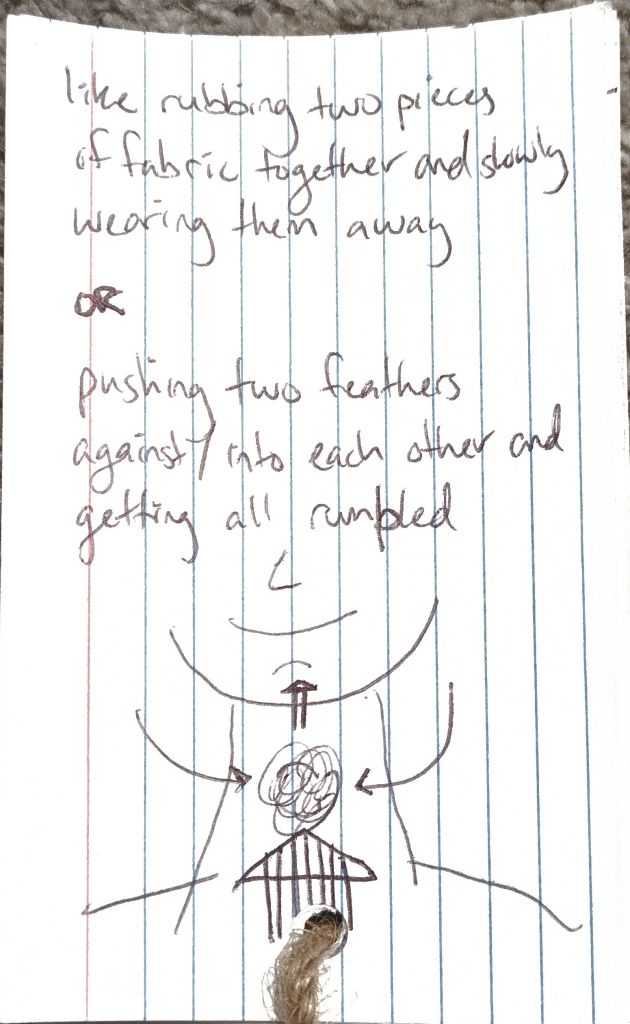 like rubbing two pieces
of fabric together and slowly
wearing them away
OR
pushing two feathers
against/into each other and
getting all rumpled